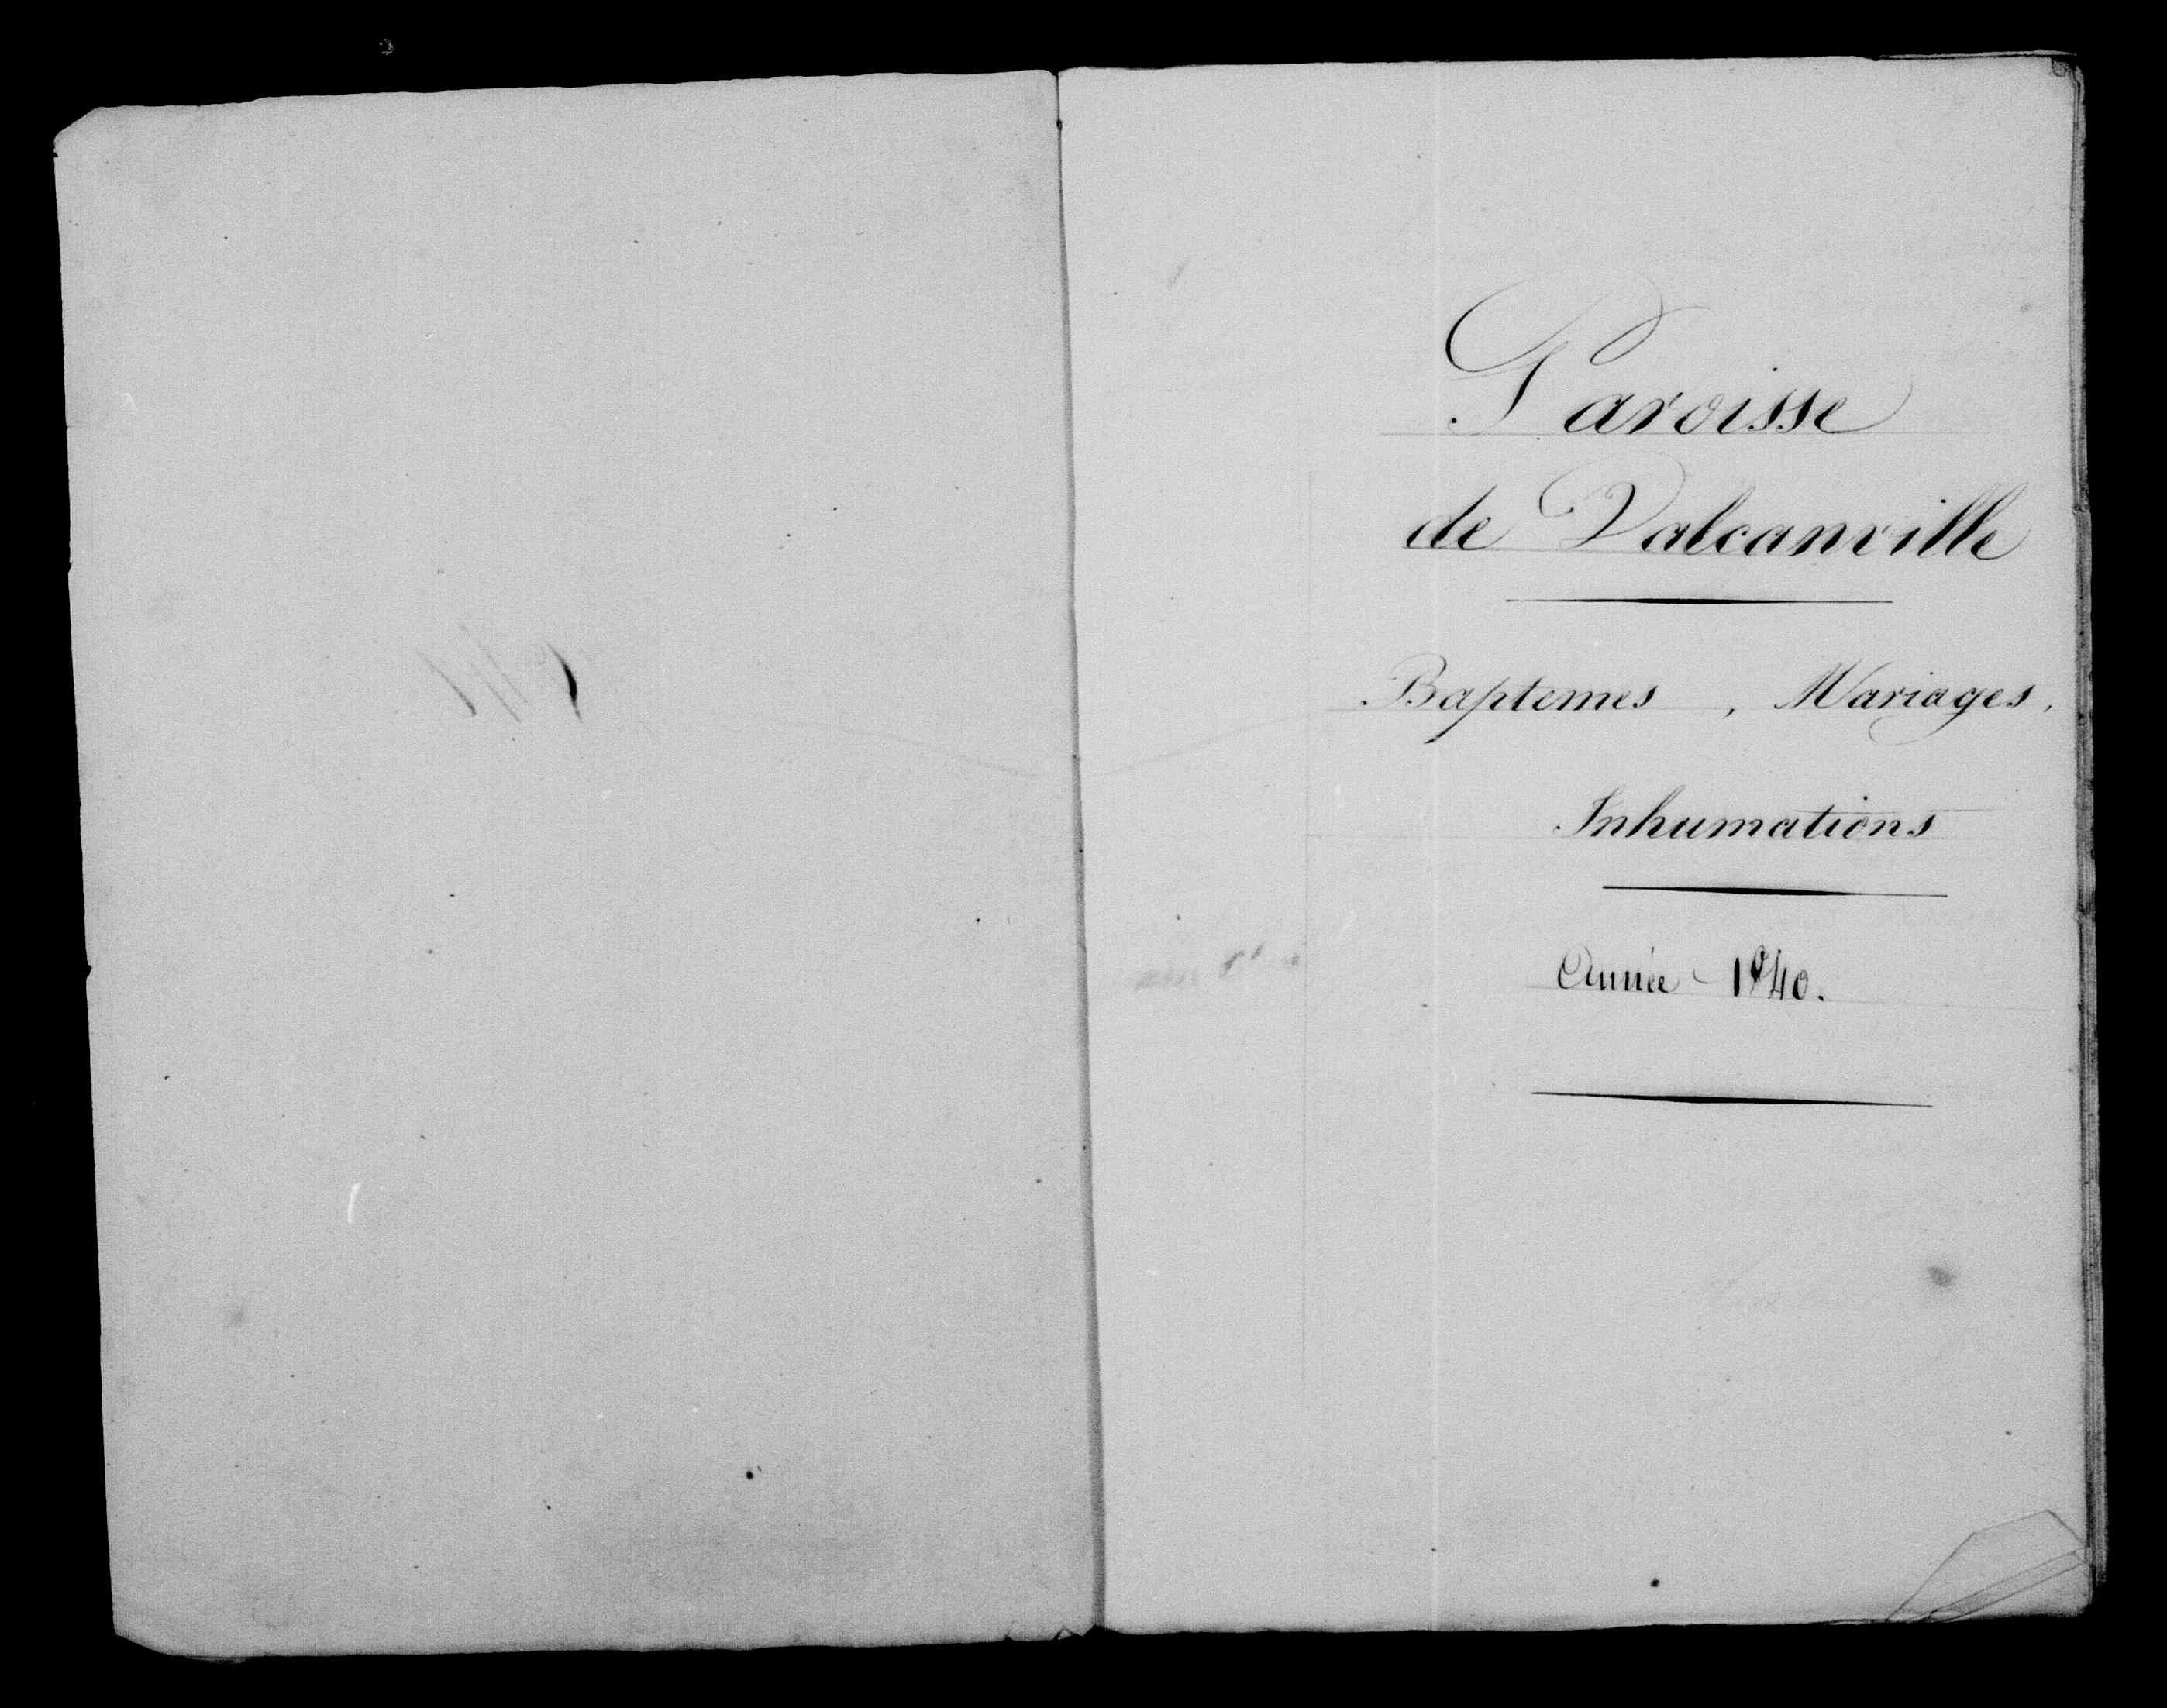 Paroisse
de Valcanville
Baptemes, Mariages,
Inhumations
Année 1840.